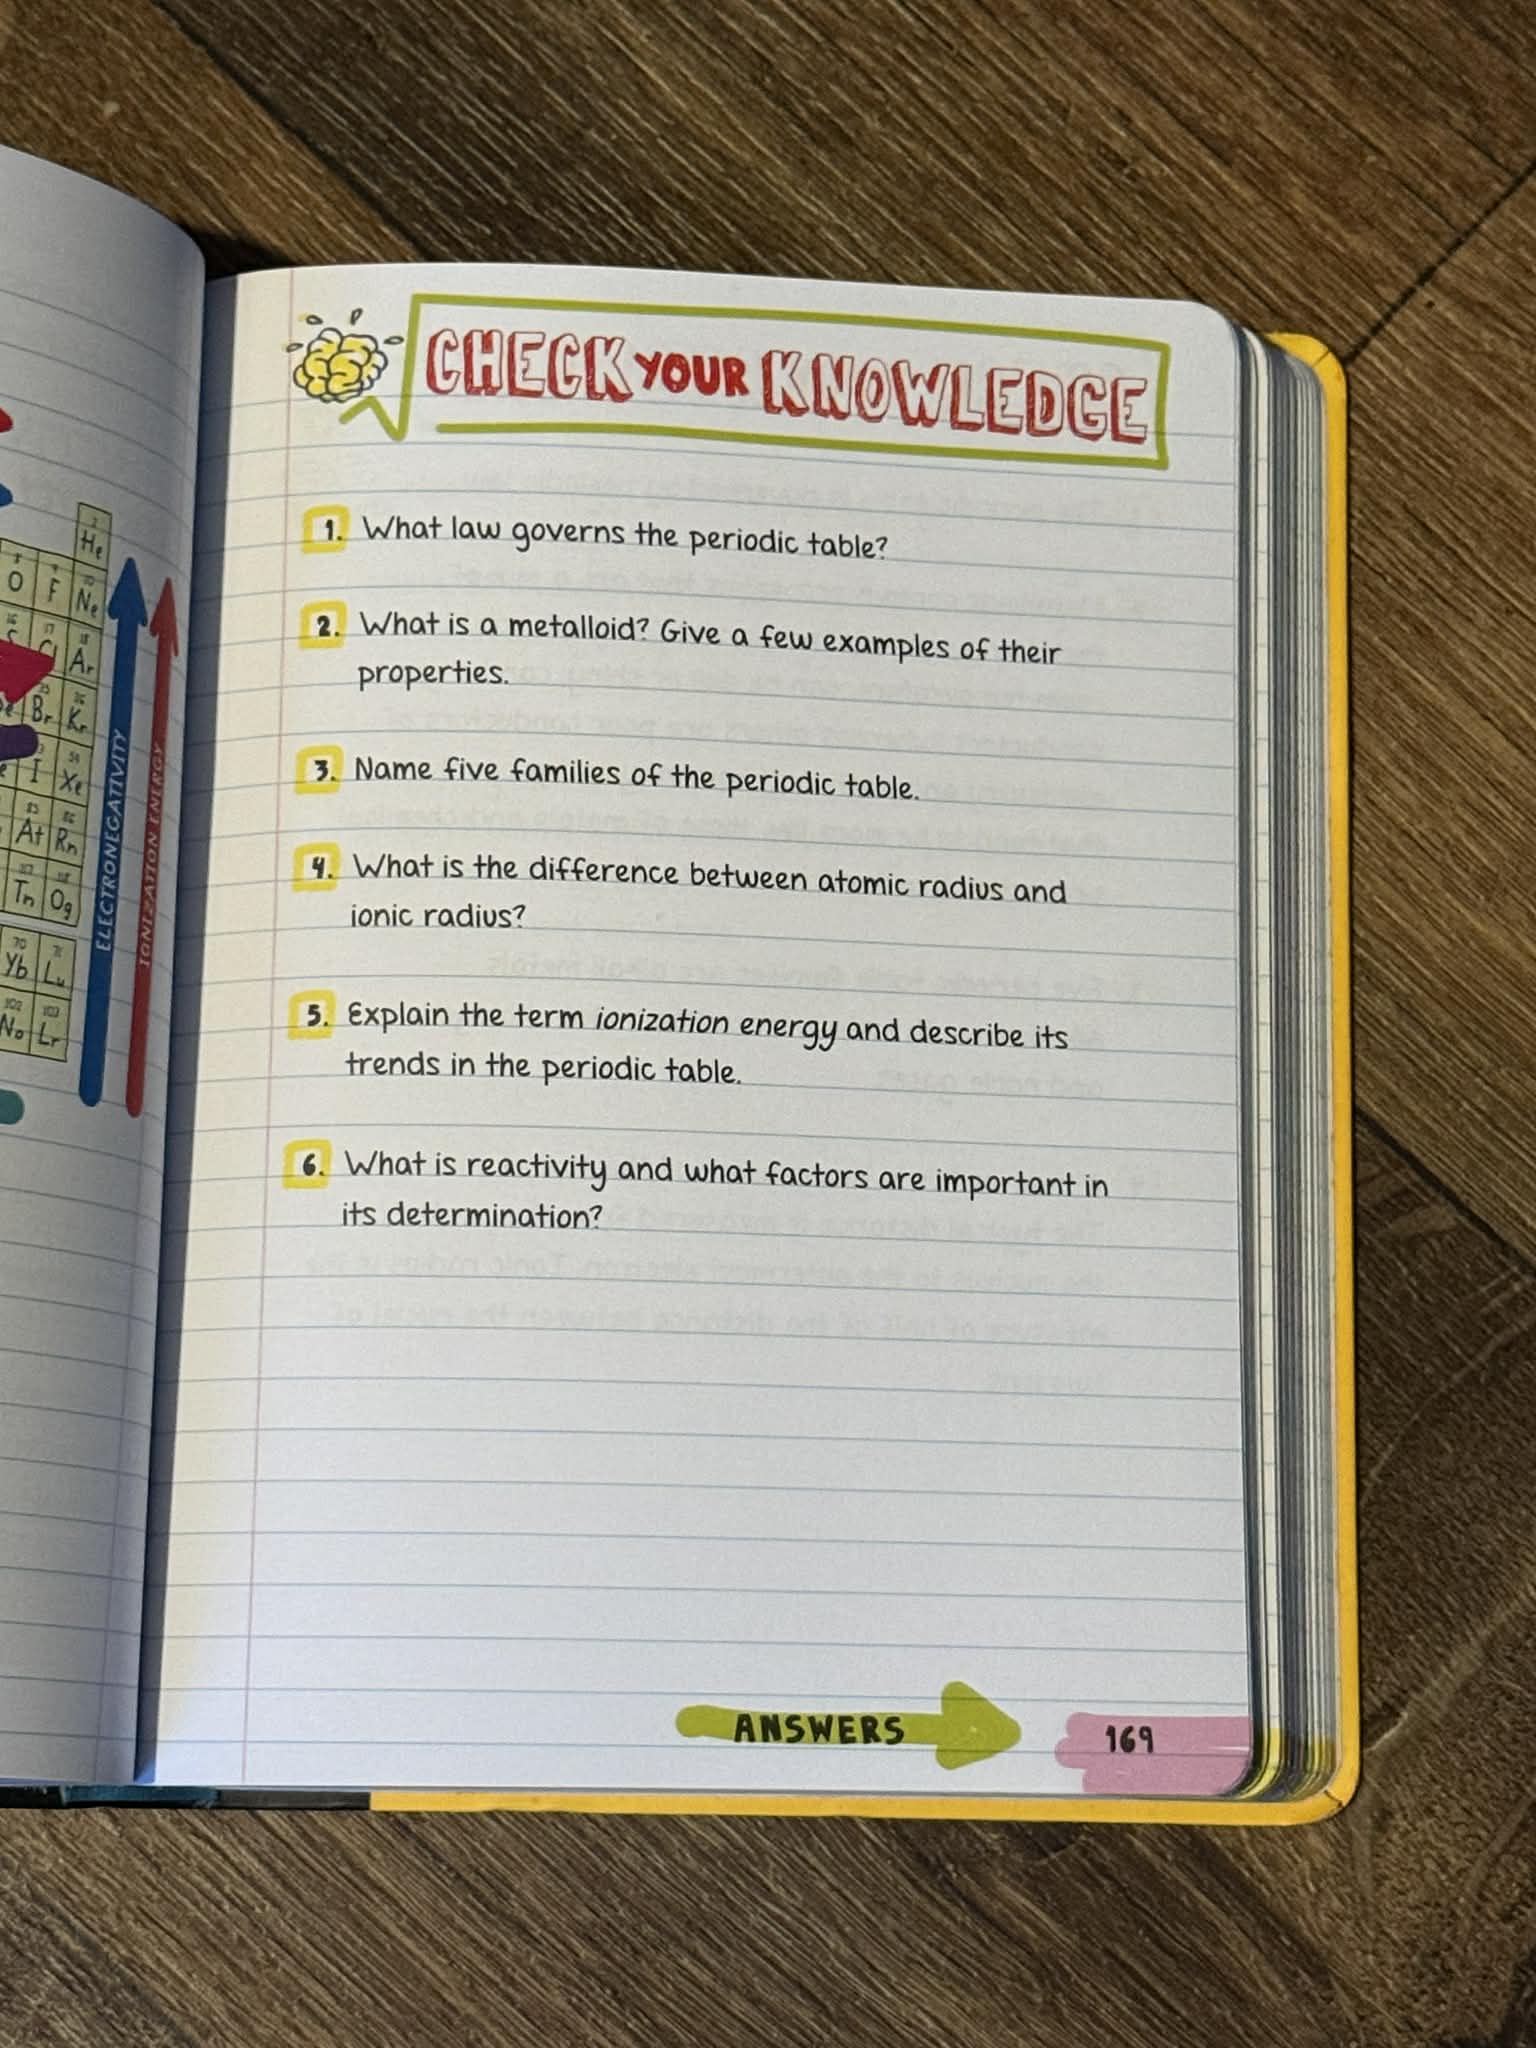 2
He
8
9
10
O
F
Ne
16
17
18
Cl
Ar
35
36
Br
Kr
54
I
Xe
85
86
At
Rn
117
118
Tn
Og
70
71
Yb
Lu
102
103
No
Lr
ELECTRONEGATIVITY
IONIZATION ENERGY
CHECK YOUR KNOWLEDGE
1. What law governs the periodic table?
2. What is a metalloid? Give a few examples of their
properties.
3. Name five families of the periodic table.
4. What is the difference between atomic radius and
ionic radius?
5. Explain the term ionization energy and describe its
trends in the periodic table.
6. What is reactivity and what factors are important in
its determination?
ANSWERS
169